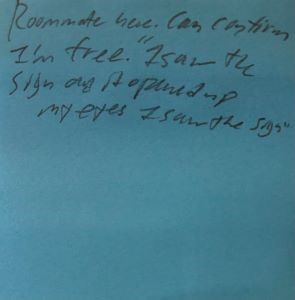 Roommate here. Can confirm
I'm free. "I saw the
sign and it opened up
my eyes I saw the sign"